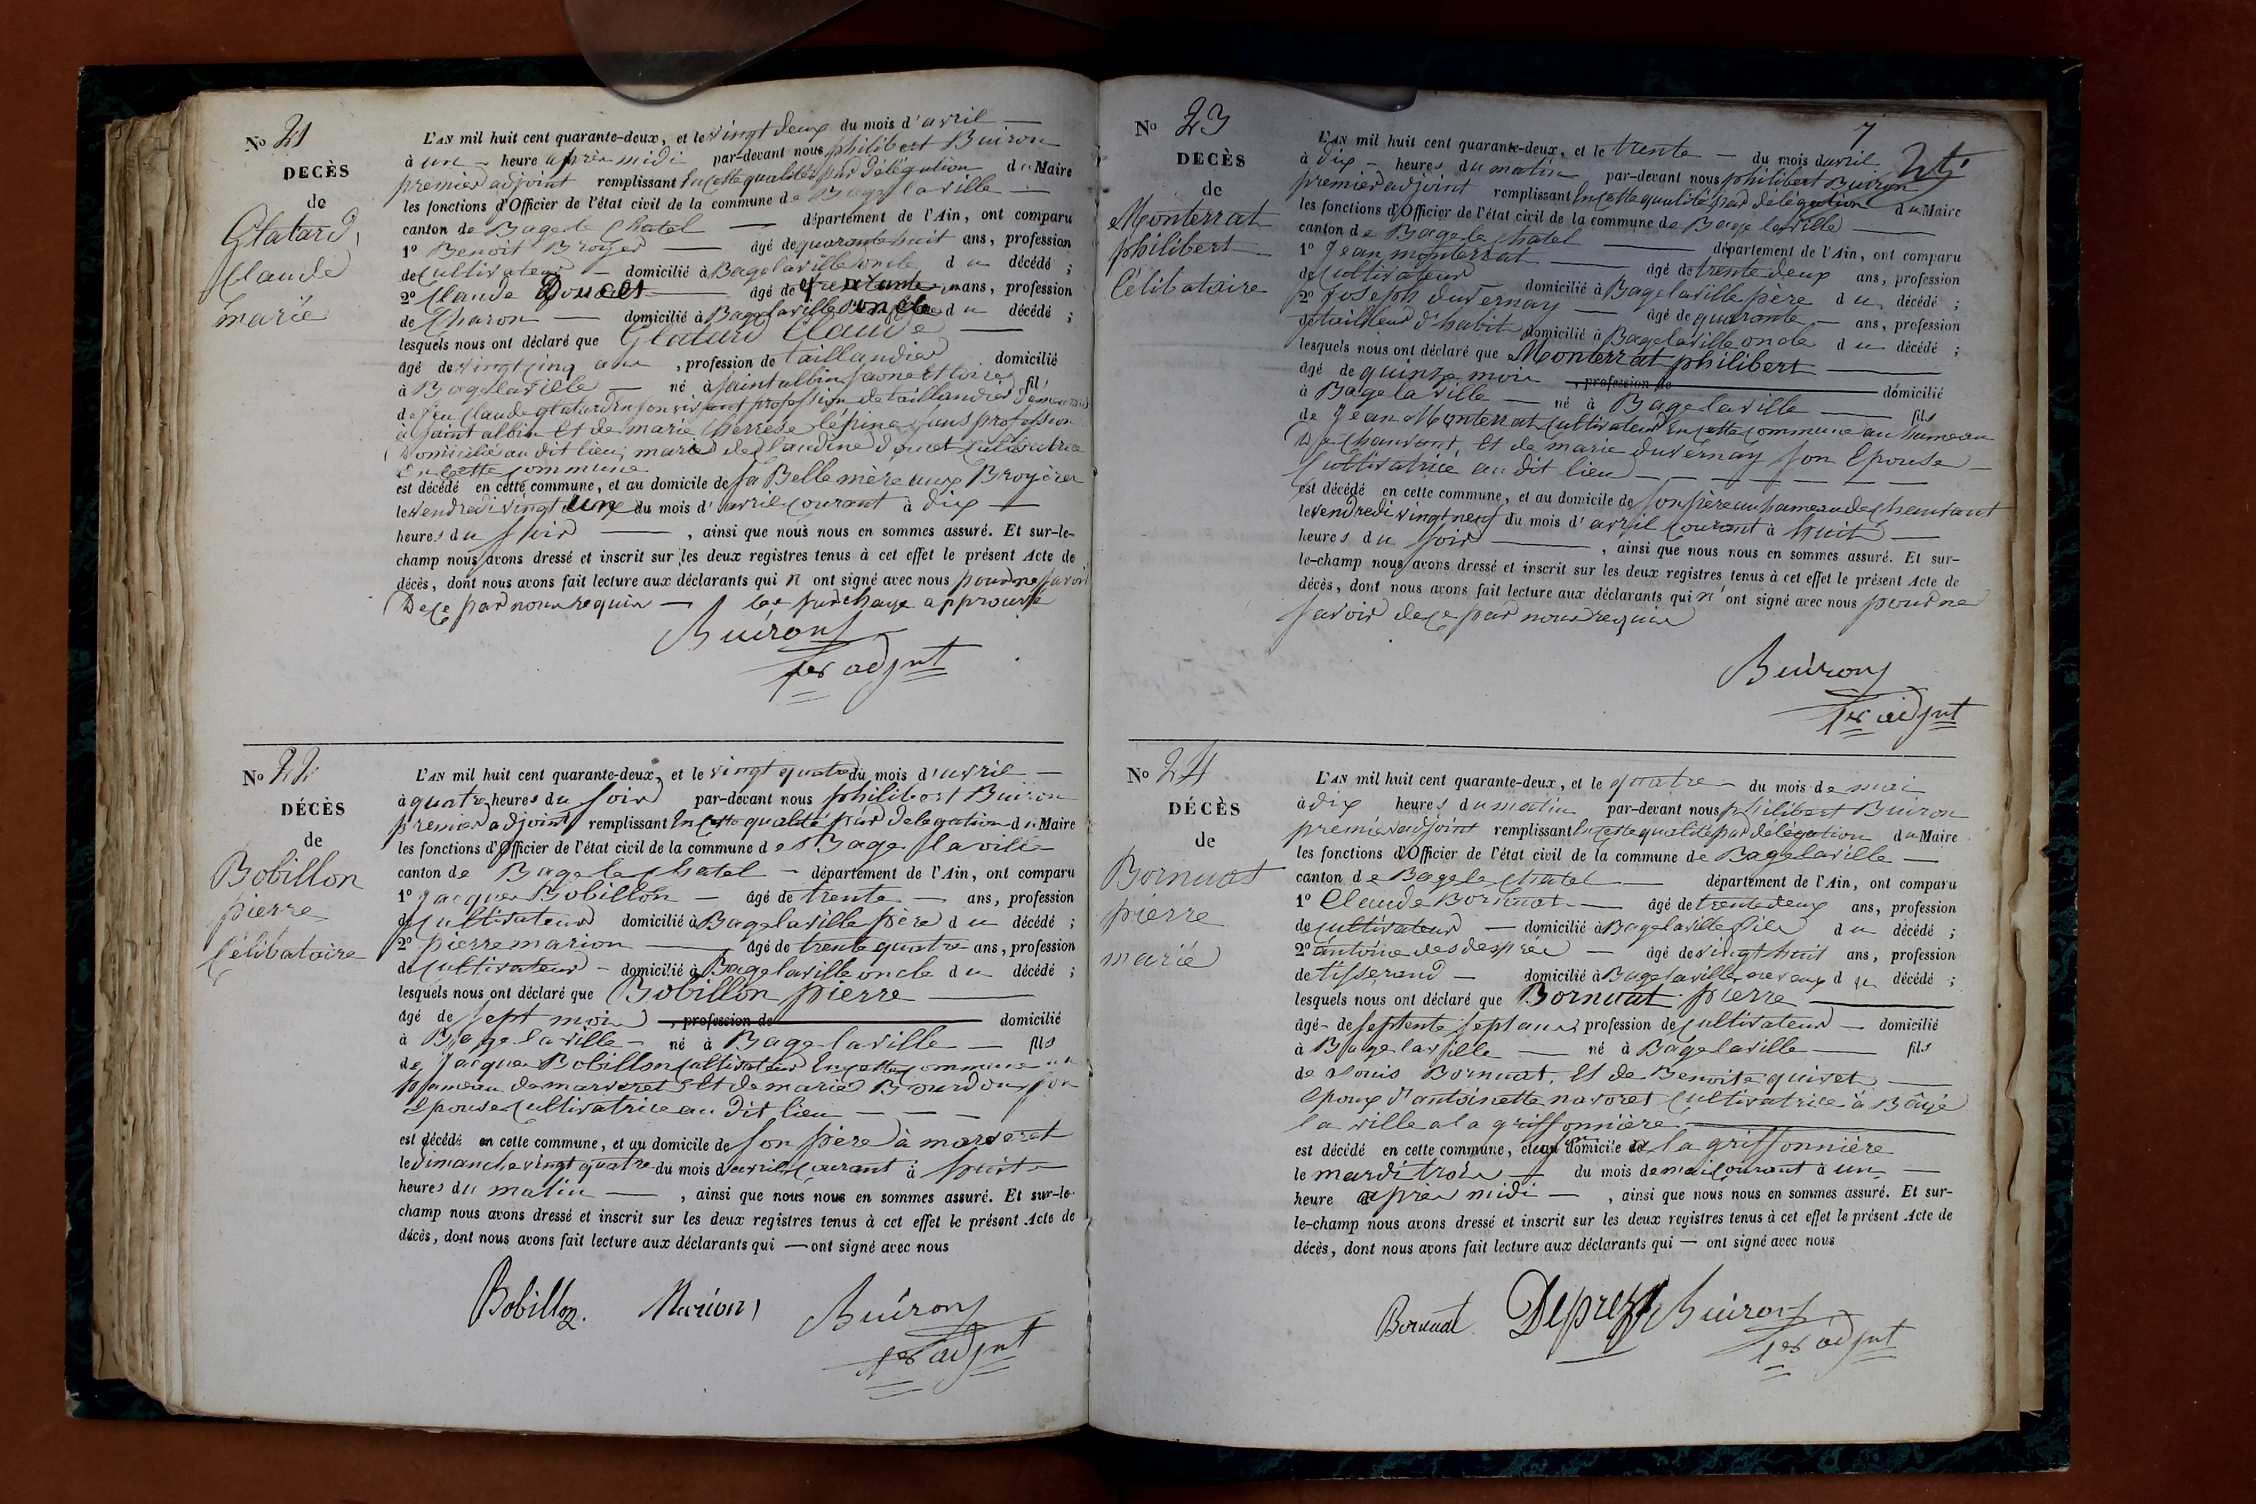 No 21
DECÈS
de
Glatard,
Claude
marié
L'AN mil huit cent quarante-deux, et le vingt deux du mois d'avril —
à un - heure après midi par-devant nous philibert Buiron
premier adjoint remplissant En cette qualité par délégation du Maire
les fonctions d'Officier de l'état civil de la commune de Bage la ville —
canton de Bage le Chatel — département de l'Ain, ont comparu
1º Benoit Broyer — âgé de quarante huit ans, profession
de Cultivateur — domicilié à Bagelaville oncle du décédé ;
2º Claude Doucet — âgé de ans, profession
de Charon — domicilié à Bagelaville oncle du décédé ;
lesquels nous ont déclaré que Glatard Claude —
âgé de vingt cinq ans , profession de taillandier domicilié
à Bagelaville — né à saint albin saone et loire fils
de feu Claude glatard En son vivant profession de taillandier demeurant
à saint albin Et de marie therrese lépine sans profession
Domicilié au dit lieu, marié de Claudine doucet cultivatrice
En Cette Commune
est décédé en cette commune, et au domicile de sa Belle mère aux Broyères
le vendredi vingt un du mois d'avril Courant à dix —
heures du soir — , ainsi que nous nous en sommes assuré. Et sur-le-
champ nous avons dressé et inscrit sur les deux registres tenus à cet effet le présent Acte de
décès, dont nous avons fait lecture aux déclarants qui n ont signé avec nous pour ne savoir
De Ce par nous requis — les surchage approuvé
Buiron
1er adjnt
No 22
DÉCÈS
de
Bobillon
pierre
Célibatoire
L'AN mil huit cent quarante-deux, et le vingt quatre du mois d'avril —
à quatre heures du soir par-devant nous philibert Buiron
premier adjoint remplissant En Cette qualité par delegation du Maire
les fonctions d'Officier de l'état civil de la commune de Bage laville
canton de Bage le chatel — département de l'Ain, ont comparu
1º Jacques Bobillon — âgé de trente — ans, profession
de Cultivateur domicilié à Bagelaville père du décédé ;
2º pierre marion — âgé de trente quatre ans, profession
de Cultivateur — domicilié à Bagelaville oncle du décédé ;
lesquels nous ont déclaré que Bobillon pierre —
âgé de sept mois , profession de domicilié
à Bagelaville — né à Bagelaville — fils
de Jacques Bobillon Cultivateur En cette Commune au
hameau de marveret Et de marie Bourdon son
Epouse Cultivatrice au dit lieu — — —
est décédé en cette commune, et au domicile de son père à marveret
le dimanche vingt quatre du mois d'avril Courant à huit
heures du matin — , ainsi que nous nous en sommes assuré. Et sur-le-
champ nous avons dressé et inscrit sur les deux registres tenus à cet effet le présent Acte de
décès, dont nous avons fait lecture aux déclarants qui — ont signé avec nous
Bobillon. Marion Buiron
1er adjnt
7
No 23
DECÈS
de
Monterrat
philibert
Célibatoire
L'AN mil huit cent quarante-deux, et le trente — du mois d'avril
à dix — heures du matin par-devant nous philibert Buiron
premier adjoint remplissant En cette qualité par délégation du Maire
les fonctions d'Officier de l'état civil de la commune de Bage laville —
canton de Bage le Chatel — département de l'Ain, ont comparu
1º Jean monterrat — âgé de trente deux ans, profession
de Cultivateur domicilié à Bagelaville père du décédé ;
2º Joseph duvernay — âgé de quarante — ans, profession
de tailleur d'habit domicilié à Bagelaville oncle du décédé ;
lesquels nous ont déclaré que Monterrat philibert —
âgé de quinze mois , profession de domicilié
à Bagelaville — né à Bagelaville — fils
de Jean Monterrat Cultivateur En cette Commune au hameau
De Chantant Et de marie duvernay son Epouse —
Cultivatrice au dit lieu — — — — —
est décédé en cette commune, et au domicile de son père au hameau de Chantant
le vendredi vingt neuf du mois d'avril Courant à huit —
heures du soir — , ainsi que nous nous en sommes assuré. Et sur-
le-champ nous avons dressé et inscrit sur les deux registres tenus à cet effet le présent Acte de
décès, dont nous avons fait lecture aux déclarants qui n'ont signé avec nous pour ne
savoir de Ce par nous requis
Buiron
1er adjnt
No 24
DÉCÈS
de
Bornuat
pierre
marié
L'AN mil huit cent quarante-deux, et le quatre — du mois de mai
à dix heures du matin par-devant nous philibert Buiron
premier adjoint remplissant En cette qualité par délégation du Maire
les fonctions d'Officier de l'état civil de la commune de Bagelaville —
canton de Bage le Chatel — département de l'Ain, ont comparu
1º Claude Bornuat — âgé de trente deux ans, profession
de Cultivateur — domicilié à Bagelaville fils du décédé ;
2º antoine des desprées — âgé de vingt huit ans, profession
de tisserand — domicilié à Bagelaville neveux du décédé ;
lesquels nous ont déclaré que Bornuat pierre —
âgé de septente sept ans, profession de Cultivateur — domicilié
à Bagelaville — né à Bagelaville — fils
de Louis Bornuat, Et de Benoite guivet —
Epoux d'antoinette navoret Cultivatrice à Bâgé
la ville a la griffonnière —
est décédé en cette commune, et en domicile à la griffonnière
le mardi trois — du mois de mai Courant à un —
heure après midi — , ainsi que nous nous en sommes assuré. Et sur-
le-champ nous avons dressé et inscrit sur les deux registres tenus à cet effet le présent Acte de
décès, dont nous avons fait lecture aux déclarants qui — ont signé avec nous
Bornuat. Deprez Buiron
1er adjnt